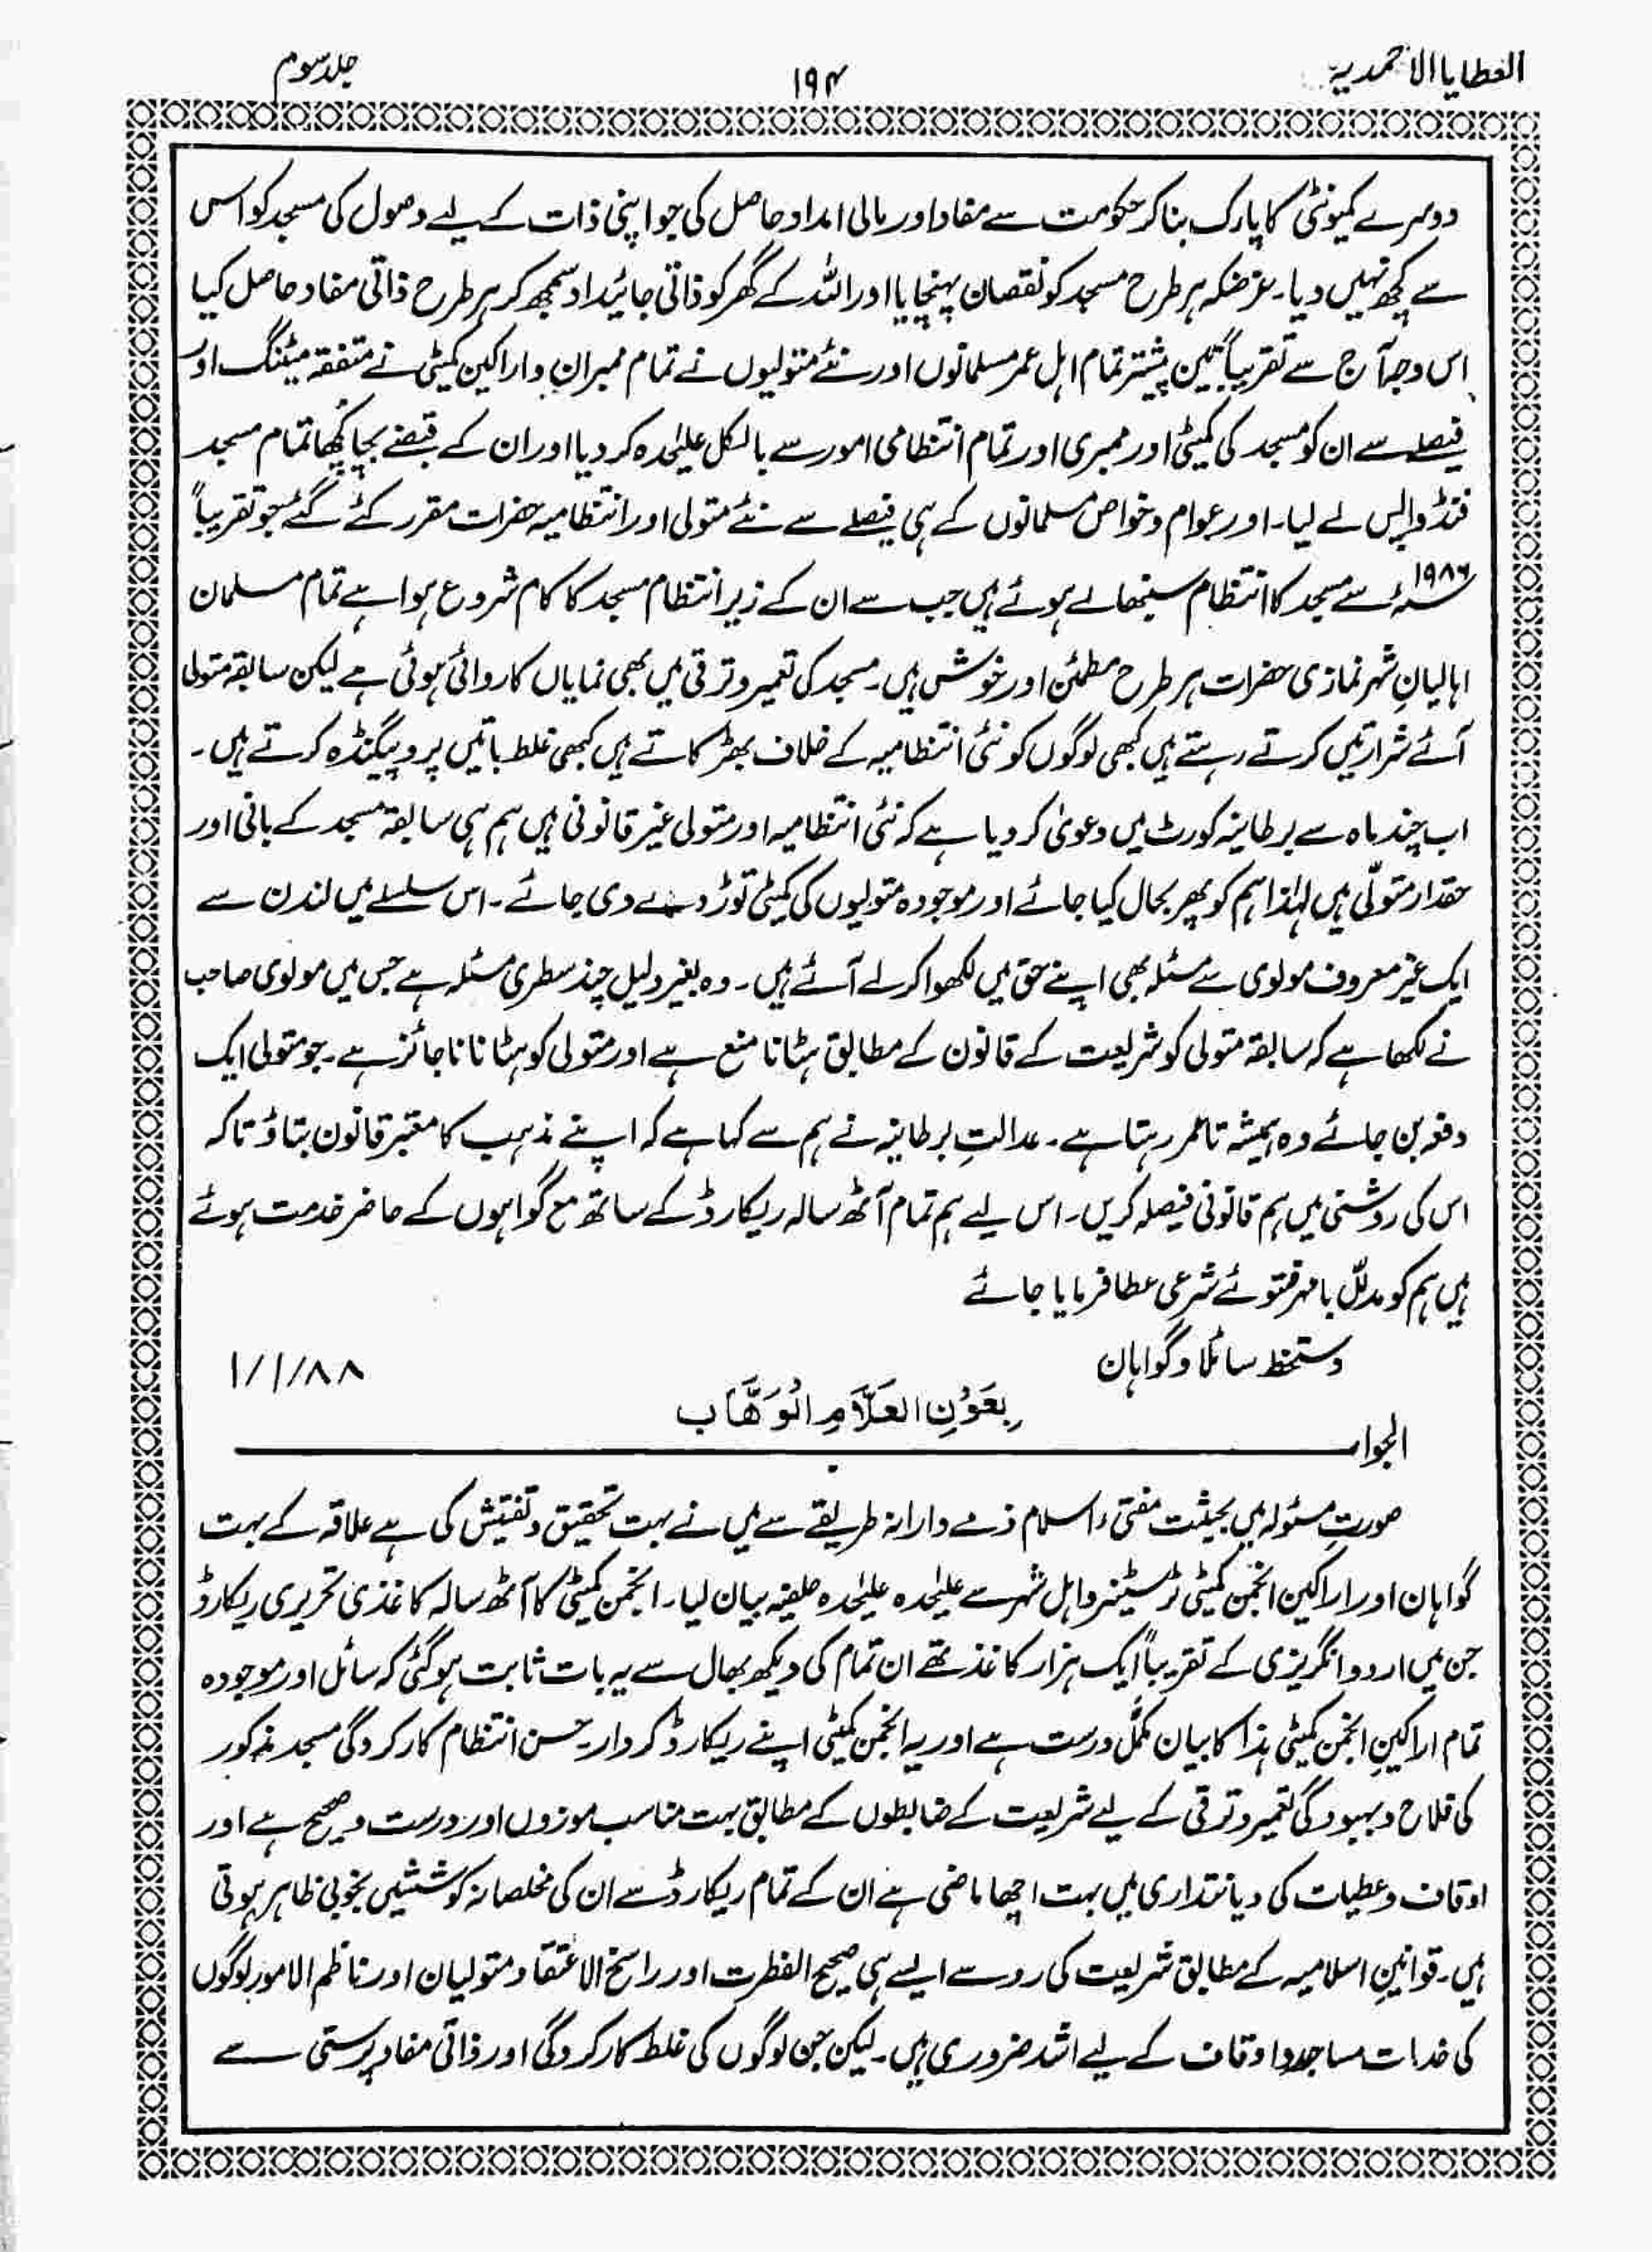 العطایا الاحمدیہ
۱۹۴
جلد سوم
دوسرے کمیونٹی کا پارک بنا کر حکومت سے مفاد اور مالی امداد حاصل کی جو اپنی ذات کے لیے وصول کی مسجد کو اس
سے کچھ نہیں دیا۔ غرضکہ ہر طرح مسجد کو نقصان پہنچایا اور اللہ کے گھر کو ذاتی جائیداد سمجھ کر ہر طرح ذاتی مفاد حاصل کیا
اس وجہ آج سے تقریباً تین پیشتر تمام اہل عمر مسلمانوں اور نئے متولیوں نے تمام ممبران و اراکین کمیٹی نے متفقہ میٹنگ اور
فیصلے سے ان کو مسجد کی کمیٹی اور ممبری اور تمام انتظامی امور سے بالکل علیٰحدہ کر دیا اور ان کے قبضے بچا کُھا تمام مسجد
فنڈ واپس لے لیا۔ اور عوام و خواص مسلمانوں کے ہی فیصلے سے نئے متولی اور انتظامیہ حضرات مقرر کئے گئے جو تقریباً
۱۹۸۶ء سے مسجد کا انتظام سنبھالے ہوئے ہیں جب سے ان کے زیر انتظام مسجد کا کام شروع ہوا ہے تمام مسلمان
اہالیانِ شہر نمازی حضرات ہر طرح مطمئن اور خوش ہیں۔ مسجد کی تعمیر و ترقی میں بھی نمایاں کاروائی ہوئی ہے لیکن سابقہ متولی
آئے شرارتیں کرتے رہتے ہیں کبھی لوگوں کو نئی انتظامیہ کے خلاف بھڑکاتے ہیں کبھی غلط باتیں پروپیگنڈہ کرتے ہیں۔
اب چند ماہ سے برطانیہ کورٹ میں دعویٰ کر دیا ہے کہ نئی انتظامیہ اور متولی غیر قانونی ہیں ہم ہی سابقہ مسجد کے بانی اور
حقدار متولّی ہیں لہٰذا ہم کو پھر بحال کیا جائے اور موجودہ متولیوں کی کمیٹی توڑ دے دی جائے۔ اس سلسلے میں لندن سے
ایک غیر معروف مولوی سے مسئلہ بھی اپنے حق میں لکھوا کر لے آئے ہیں۔ وہ بغیر دلیل چند سطری مسئلہ ہے جس میں مولوی صاحب
نے لکھا ہے کہ سابقہ متولی کو شریعت کے قانون کے مطابق ہٹانا منع ہے اور متولی کو ہٹانا ناجائز ہے۔ جو متولی ایک
دفعہ بن جائے وہ ہمیشہ تا عمر رہتا ہے۔ عدالتِ برطانیہ نے ہم سے کہا ہے کہ اپنے مذہب کا معتبر قانون بتاؤ تاکہ
اس کی روشنی میں ہم قانونی فیصلہ کریں۔ اس لیے ہم تمام آٹھ سالہ ریکارڈ کے ساتھ مع گواہوں کے حاضر خدمت ہوئے
ہیں ہم کو مدلّل بامہر فتوئے شرعی عطا فرمایا جائے
دستخط سائلا و گواہان
۱/۱/۸۸
بِعَوْنِ العَلَّامِ الْوَهَّاب
الجواب
صورتِ مسئولہ میں بحیثت مفتیء اسلام ذمے دارانہ طریقے سے میں نے بہت تحقیق و تفتیش کی ہے علاقہ کے بہت
گواہان اور اراکین انجمن کمیٹی ٹرسٹیز و اہل شہر سے علیٰحدہ علیٰحدہ حلفیہ بیان لیا۔ انجمن کمیٹی کا آٹھ سالہ کاغذی تحریری ریکارڈ
جن میں اردو انگریزی کے تقریباً ایک ہزار کاغذ تھے ان تمام کی دیکھ بھال سے یہ بات ثابت ہو گئی کہ سائل اور موجودہ
تمام اراکینِ انجمن کمیٹی ہذا کا بیان مکمّل درست ہے اور یہ انجمن کمیٹی اپنے ریکارڈ کردار۔ حسن انتظام کارکردگی مسجد مذکور
کی فلاح و بہبودگی تعمیر و ترقی کے لیے شریعت کے ضابطوں کے مطابق بہت مناسب موزوں اور درست و صحیح ہے اور
اوقاف و عطیات کی دیانتداری میں بہت اچھا ماضی ہے ان کے تمام ریکارڈ سے ان کی مخلصانہ کوششیں بخوبی ظاہر ہوتی
ہیں۔ قوانینِ اسلامیہ کے مطابق شریعت کی رو سے ایسے ہی صحیح الفطرت اور راسخ الاعتقاد متولیان اور ناظم الامور لوگوں
کی خدمات مساجد و اوقاف کے لیے اشد ضروری ہیں۔ لیکن جن لوگوں کی غلط کارکردگی اور ذاتی مفاد پرستی سے